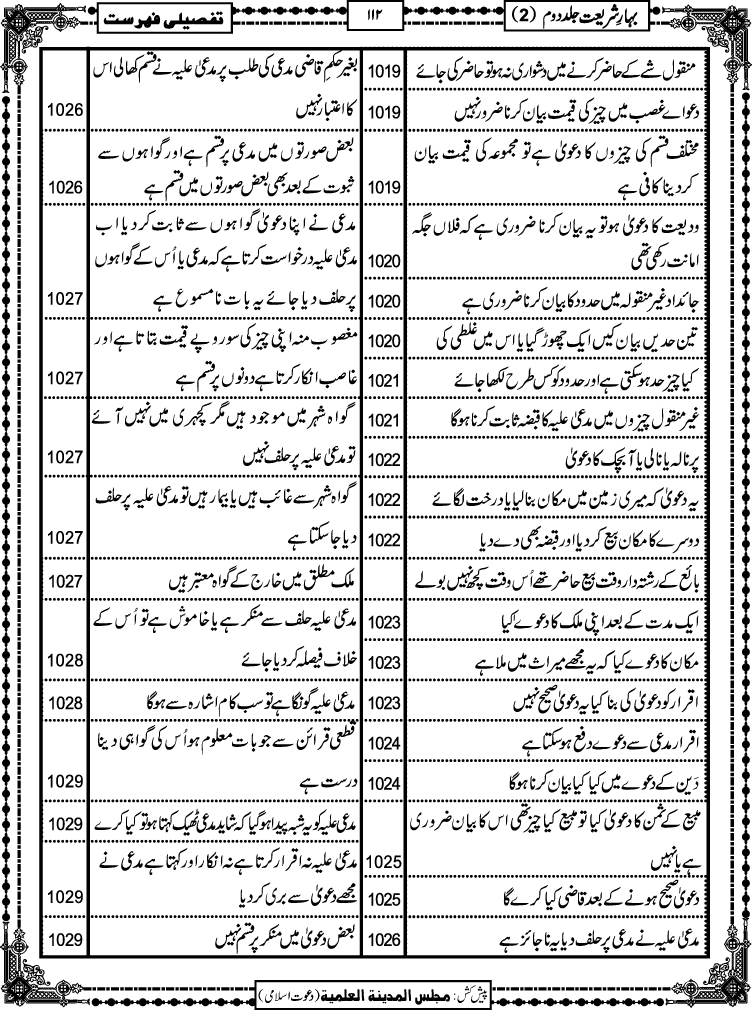 بہارِ شریعت جلد دوم (2)
۱۱۲
تفصیلی فہرست
منقول شے کے حاضر کرنے میں دشواری نہ ہو تو حاضر کی جائے 1019
دعوائے غصب میں چیز کی قیمت بیان کرنا ضرور نہیں 1019
مختلف قسم کی چیزوں کا دعویٰ ہے تو مجموعہ کی قیمت بیان
کر دینا کافی ہے 1019
ودیعت کا دعویٰ ہو تو یہ بیان کرنا ضروری ہے کہ فلاں جگہ
امانت رکھی تھی 1020
جائداد غیر منقولہ میں حدود کا بیان کرنا ضروری ہے 1020
تین حدیں بیان کیں ایک چھوڑ گیا یا اس میں غلطی کی 1020
کیا چیز حد ہوسکتی ہے اور حدود کو کس طرح لکھا جائے 1021
غیر منقول چیزوں میں مدعیٰ علیہ کا قبضہ ثابت کرنا ہوگا 1021
پرنالہ یا نالی یا آبچک کا دعویٰ 1022
یہ دعویٰ کہ میری زمین میں مکان بنا لیا یا درخت لگائے 1022
دوسرے کا مکان بیع کر دیا اور قبضہ بھی دے دیا 1022
بائع کے رشتہ دار وقت بیع حاضر تھے اُس وقت کچھ نہیں بولے
ایک مدت کے بعد اپنی ملک کا دعوے کیا 1023
مکان کا دعوے کیا کہ یہ مجھے میراث میں ملا ہے 1023
اقرار کو دعویٰ کی بنا کیا یہ دعویٰ صحیح نہیں 1023
اقرار مدعی سے دعوے دفع ہوسکتا ہے 1024
دَین کے دعوے میں کیا کیا بیان کرنا ہوگا 1024
مبیع کے ثمن کا دعویٰ کیا تو مبیع کیا چیز تھی اس کا بیان ضروری
ہے یا نہیں 1025
دعویٰ صحیح ہونے کے بعد قاضی کیا کرے گا 1025
مدعیٰ علیہ نے مدعی پر حلف دیا یہ ناجائز ہے 1026
بغیر حکم قاضی مدعی کی طلب پر مدعیٰ علیہ نے قسم کھالی اس
کا اعتبار نہیں 1026
بعض صورتوں میں مدعی پر قسم ہے اور گواہوں سے
ثبوت کے بعد بھی بعض صورتوں میں قسم ہے 1026
مدعی نے اپنا دعویٰ گواہوں سے ثابت کر دیا اب
مدعیٰ علیہ درخواست کرتا ہے کہ مدعی یا اُس کے گواہوں
پر حلف دیا جائے یہ بات نا مسموع ہے 1027
مغصوب منہ اپنی چیز کی سو روپے قیمت بتاتا ہے اور
غاصب انکار کرتا ہے دونوں پر قسم ہے 1027
گواہ شہر میں موجود ہیں مگر کچہری میں نہیں آئے
تو مدعیٰ علیہ پر حلف نہیں 1027
گواہ شہر سے غائب ہیں یا بیمار ہیں تو مدعیٰ علیہ پر حلف
دیا جاسکتا ہے 1027
ملک مطلق میں خارج کے گواہ معتبر ہیں 1027
مدعیٰ علیہ حلف سے منکر ہے یا خاموش ہے تو اُس کے
خلاف فیصلہ کر دیا جائے 1028
مدعیٰ علیہ گونگا ہے تو سب کام اشارہ سے ہوگا 1028
قطعی قرائن سے جو بات معلوم ہو اُس کی گواہی دینا
درست ہے 1029
مدعیٰ علیہ کو یہ شبہ پیدا ہوگیا کہ شاید مدعی ٹھیک کہتا ہو تو کیا کرے 1029
مدعیٰ علیہ نہ اقرار کرتا ہے نہ انکار اور کہتا ہے مدعی نے
مجھے دعویٰ سے بری کر دیا 1029
بعض دعویٰ میں منکر پر قسم نہیں 1029
پیش کش: مجلس المدینۃ العلمیۃ (دعوت اسلامی)